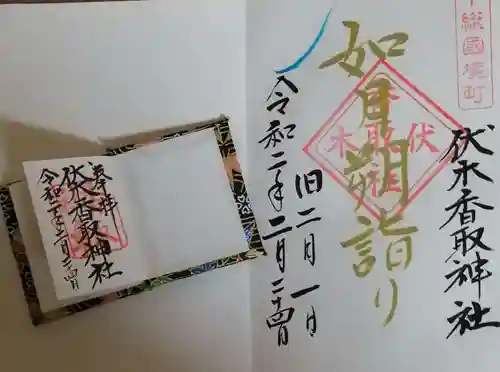 下総國境町
伏木香取神社
如月朔詣り
伏木香取神社
旧二月一日
令和二年二月二十四日
奉拝
伏木香取神社
令和二年二月二十四日